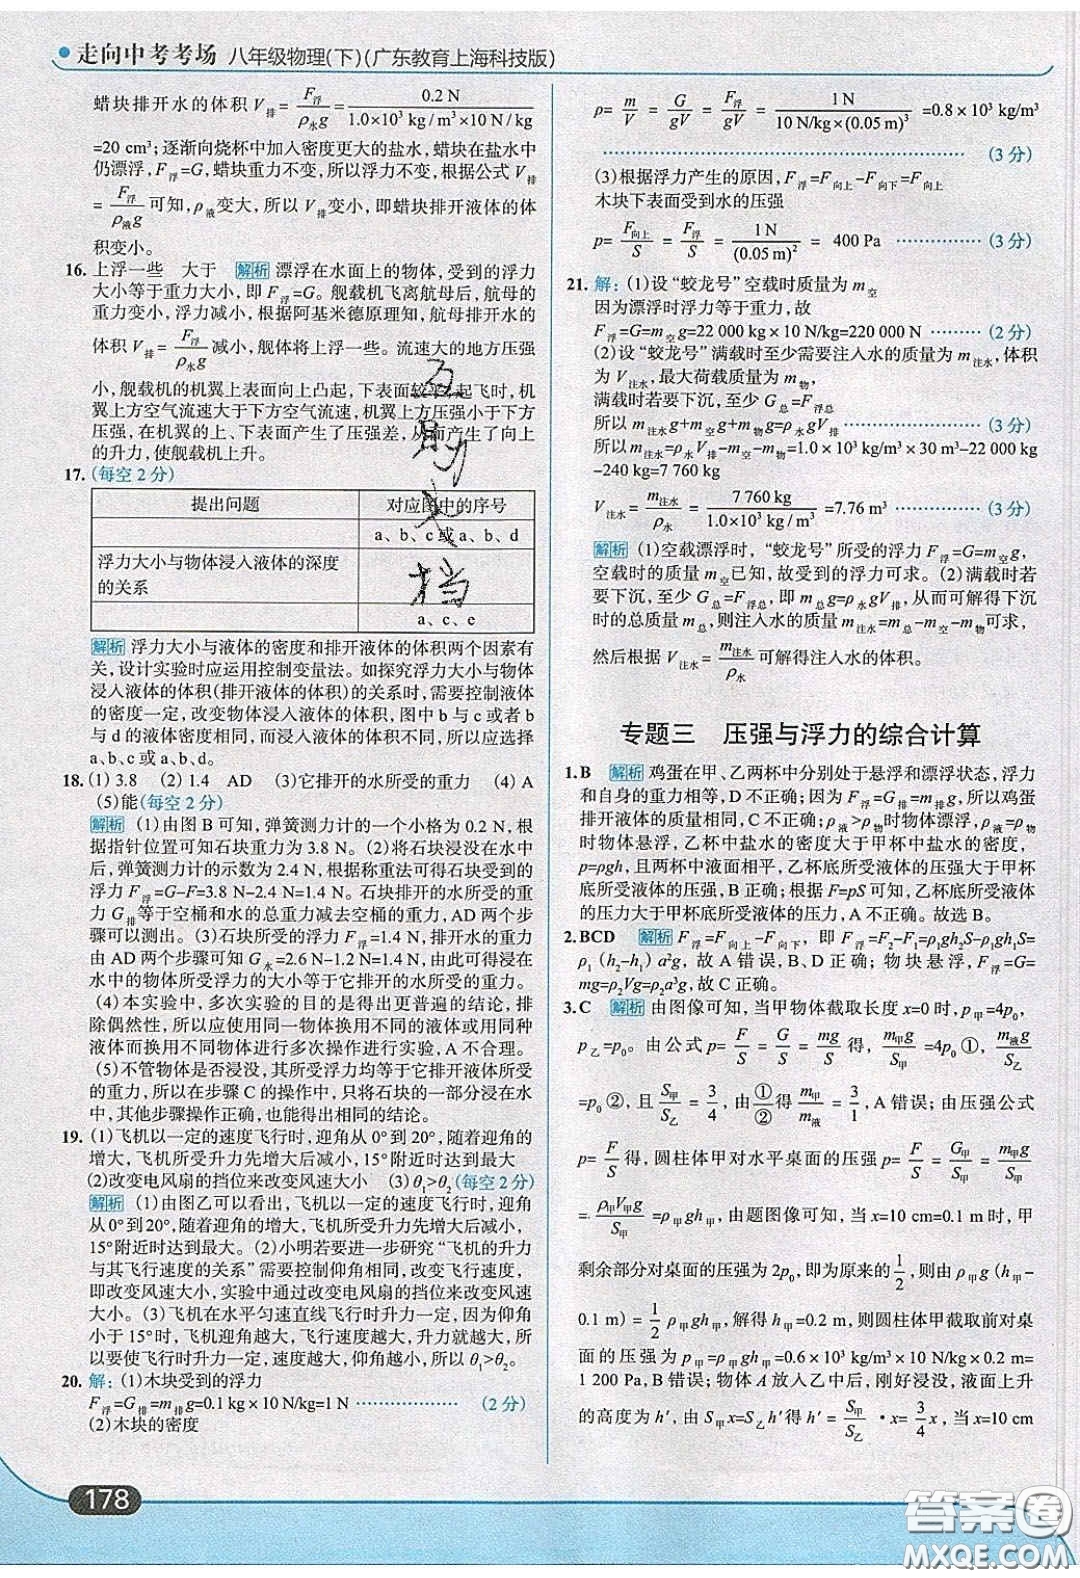 走向中考考场 八年级物理(下)(广东教育上海科技版)
蜡块排开水的体积 V排 = F浮/ρ水g = 0.2 N/(1.0×10³ kg/m³×10 N/kg)
=20 cm³;逐渐向烧杯中加入密度更大的盐水,蜡块在盐水中
仍漂浮,F浮=G,蜡块重力不变,所以浮力不变,根据公式 V排
= F浮/ρ液g 可知,ρ液变大,所以 V排变小,即蜡块排开液体的体
积变小。
16. 上浮一些 大于 解析 漂浮在水面上的物体,受到的浮力
大小等于重力大小,即 F浮=G。舰载机飞离航母后,航母的
重力变小,浮力减小,根据阿基米德原理知,航母排开水的
体积 V排 = F浮/ρ水g 减小,舰体将上浮一些。流速大的地方压强
小,舰载机的机翼上表面向上凸起,下表面较平,起飞时,机
翼上方空气流速大于下方空气流速,机翼上方压强小于下方
压强,在机翼的上、下表面产生了压强差,从而产生了向上
的升力,使舰载机上升。
17. (每空 2 分)
提出问题 对应图中的序号
a、b、c 或 a、b、d
浮力大小与物体浸入液体的深度
的关系
a、c、e
解析 浮力大小与液体的密度和排开液体的体积两个因素有
关,设计实验时应运用控制变量法。如探究浮力大小与物体
浸入液体的体积(排开液体的体积)的关系时,需要控制液体
的密度一定,改变物体浸入液体的体积,图中 b 与 c 或者 b
与 d 的液体密度相同,而浸入液体的体积不同,所以应选择
a、b、c 或 a、b、d。
18. (1) 3.8 (2) 1.4 AD (3)它排开的水所受的重力 (4) A
(5)能(每空 2 分)
解析 (1)由图 B 可知,弹簧测力计的一个小格为 0.2 N,根
据指针位置可知石块重力为 3.8 N。(2)将石块浸没在水中
后,弹簧测力计的示数为 2.4 N,根据称重法可得石块受到的
浮力 F浮=G-F=3.8 N-2.4 N=1.4 N。石块排开的水所受的重
力 G排等于空桶和水的总重力减去空桶的重力,AD 两个步
骤可以测出。(3)石块所受的浮力 F浮=1.4 N,排开水的重力
由 AD 两个步骤可知 G水=2.6 N-1.2 N=1.4 N,由此可得浸在
水中的物体所受浮力的大小等于它排开的水所受的重力。
(4)本实验中,多次实验的目的是得出更普遍的结论,排
除偶然性,所以应使用同一物体换用不同的液体或用同种
液体而换用不同物体进行多次操作进行实验,A 不合理。
(5)不管物体是否浸没,其所受浮力均等于它排开液体所受
的重力,所以在步骤 C 的操作中,只将石块的一部分浸在水
中,其他步骤操作正确,也能得出相同的结论。
19. (1)飞机以一定的速度飞行时,迎角从 0°到 20°,随着迎角的
增大,飞机所受升力先增大后减小,15°附近时达到最大
(2)改变电风扇的挡位来改变风速大小 (3) θ₁>θ₂(每空 2 分)
解析 (1)由图乙可以看出,飞机以一定的速度飞行时,迎角
从 0°到 20°,随着迎角的增大,飞机所受升力先增大后减小,
15°附近时达到最大。(2)小明若要进一步研究“飞机的升力
与其飞行速度的关系”需要控制仰角相同,改变飞行速度,
即改变风速大小,实验中通过改变电风扇的挡位来改变风速
大小。(3)飞机在水平匀速直线飞行时升力一定,因为仰角
小于 15°时,飞机迎角越大,飞行速度越大,升力就越大,所
以要使飞机升力一定,速度越大,仰角越小,所以 θ₁>θ₂。
20. 解:(1)木块受到的浮力
F浮=G排=m排g=0.1 kg×10 N/kg=1 N ……………… (2 分)
(2)木块的密度
ρ= m/V = G/gV = F浮/gV = 1 N/(10 N/kg×(0.05 m)³) =0.8×10³ kg/m³
……………………………………………… (3 分)
(3)根据浮力产生的原因,F浮=F向上-F向下=F向上
木块下表面受到水的压强
p= F向上/S = F浮/S = 1 N/(0.05 m)² = 400 Pa …………… (3 分)
21. 解:(1)设“蛟龙号”空载时质量为 m空
因为漂浮时浮力等于重力,故
F浮=G=m空g=22 000 kg×10 N/kg=220 000 N ……… (2 分)
(2)设“蛟龙号”满载时至少需要注入水的质量为 m注水,体积
为 V注水,最大荷载质量为 m物,
满载时若要下沉,至少 G总=F浮总
所以 m注水g+m空g+m物g=ρ水gV排 ………………… (3 分)
所以 m注水=ρ水V排-m空-m物=1.0×10³ kg/m³×30 m³-22 000 kg
-240 kg=7 760 kg
V注水= m注水/ρ水 = 7 760 kg/(1.0×10³ kg/m³) =7.76 m³ …………… (3 分)
解析 (1)空载漂浮时,“蛟龙号”所受的浮力 F浮=G=m空g,
空载时的质量 m空已知,故受到的浮力可求。(2)满载时若
要下沉,至少 G总=F浮总,即 m总g=ρ水gV排,从而可解得下沉
时的总质量 m总,则注入水的质量为 m总-m空-m物可求,
然后根据 V注水 = m注水/ρ水 可解得注入水的体积。
专题三 压强与浮力的综合计算
1. B 解析 鸡蛋在甲、乙两杯中分别处于悬浮和漂浮状态,浮力
和自身的重力相等,D 不正确;因为 F浮=G排=m排g,所以鸡蛋
排开液体的质量相同,C 不正确;ρ液>ρ物时物体漂浮,ρ液=ρ物
时物体悬浮,乙杯中盐水的密度大于甲杯中盐水的密度,
p=ρgh,且两杯中液面相平,乙杯底所受液体的压强大于甲杯
底所受液体的压强,B 正确;根据 F=pS 可知,乙杯底所受液体
的压力大于甲杯底所受液体的压力,A 不正确。故选 B。
2. BCD 解析 F浮=F向上-F向下,即 F浮=F₂-F₁=ρ₁gh₂S-ρ₁gh₁S=
ρ₁(h₂-h₁)a²g,故 A 错误,B、D 正确;物块悬浮,F浮=G=
mg=ρ₂Vg=ρ₂a³g,故 C 正确。
3. C 解析 由图像可知,当甲物体截取长度 x=0 时,p甲=4p₀,
p乙=p₀。由公式 p= F/S = G/S = mg/S 得,m甲g/S甲 =4p₀ ①,m液g/S乙
=p₀ ②,且 S甲/S乙 = 3/4,由 ①/② 得 m甲/m液 = 3/1,A 错误;由压强公式
p= F/S 得,圆柱体甲对水平桌面的压强 p甲= F/S = G甲/S甲 = m甲g/S甲
= ρ甲V甲g/S甲 =ρ甲gh甲,由题图像可知,当 x=10 cm=0.1 m 时,甲
剩余部分对桌面的压强为 2p₀,即为原来的 1/2,则由 ρ甲g(h甲-
0.1 m) = 1/2 ρ甲gh甲,解得 h甲=0.2 m,则圆柱体甲截取前对桌
面的压强为 p甲=ρ甲gh甲=0.6×10³ kg/m³×10 N/kg×0.2 m=
1 200 Pa,B 错误;物体 A 放入乙中后,刚好浸没,液面上升
的高度为 h′,由 S甲x=S乙h′得 h′= S甲/S乙 ·x= 3/4 x,当 x=10 cm
178
五 剐 文 档
答案圈
MXQE.COM